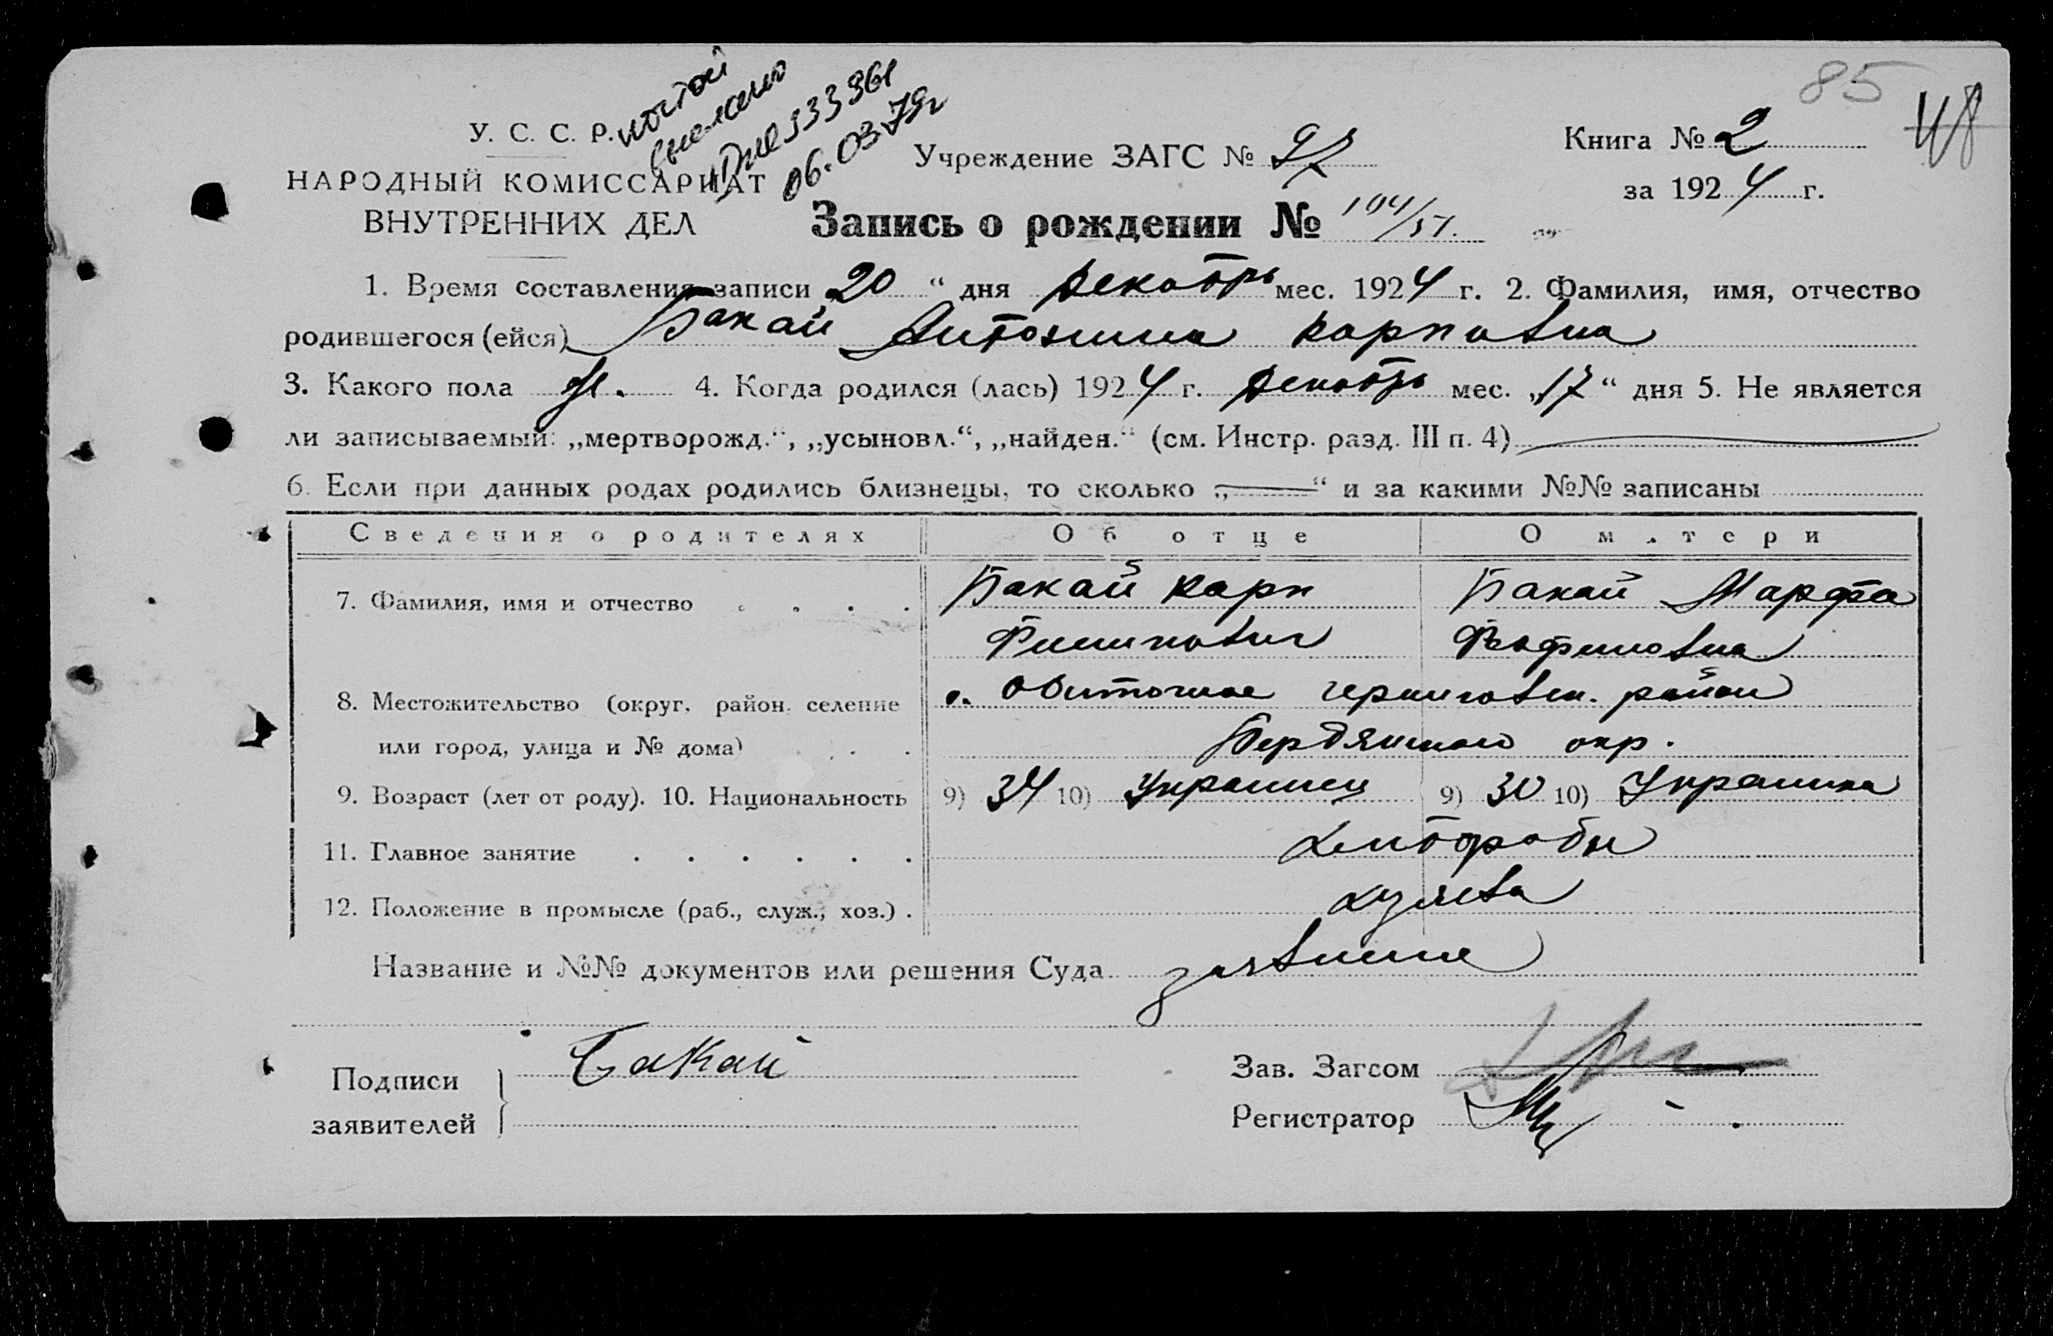 85 48
У. С. С. Р.
НАРОДНЫЙ КОМИССАРИАТ
ВНУТРЕННИХ ДЕЛ
06.03.79г
Учреждение ЗАГС № 97
Книга № 2
за 1924 г.
Запись о рождении № 194/51.
1. Время составления записи 20 “ дня декабрь мес. 1924 г. 2. Фамилия, имя, отчество
родившегося (ейся) Бакай Антонина Карповна
3. Какого пола ж. 4. Когда родился (лась) 1924 г. декабрь мес. „17“ дня 5. Не является
ли записываемый: „мертворожд.“, „усыновл.“, „найден.“ (см. Инстр. разд. III п. 4)
6. Если при данных родах родились близнецы, то сколько „—“ и за какими №№ записаны
Сведения о родителях Об отце О матери
7. Фамилия, имя и отчество . . . . Бакай Карп Бакай Марфа
8. Местожительство (округ, район, селение с. Обиточное черниговск. район
или город, улица и № дома) . . . Бердянского окр.
9. Возраст (лет от роду). 10. Национальность 9) 34 10) Украинец 9) 30 10) Украинка
11. Главное занятие . . . . . . хлебороб
12. Положение в промысле (раб., служ., хоз.) .
Название и №№ документов или решения Суда заявление
Подписи
заявителей
Бакай
Зав. Загсом
Регистратор